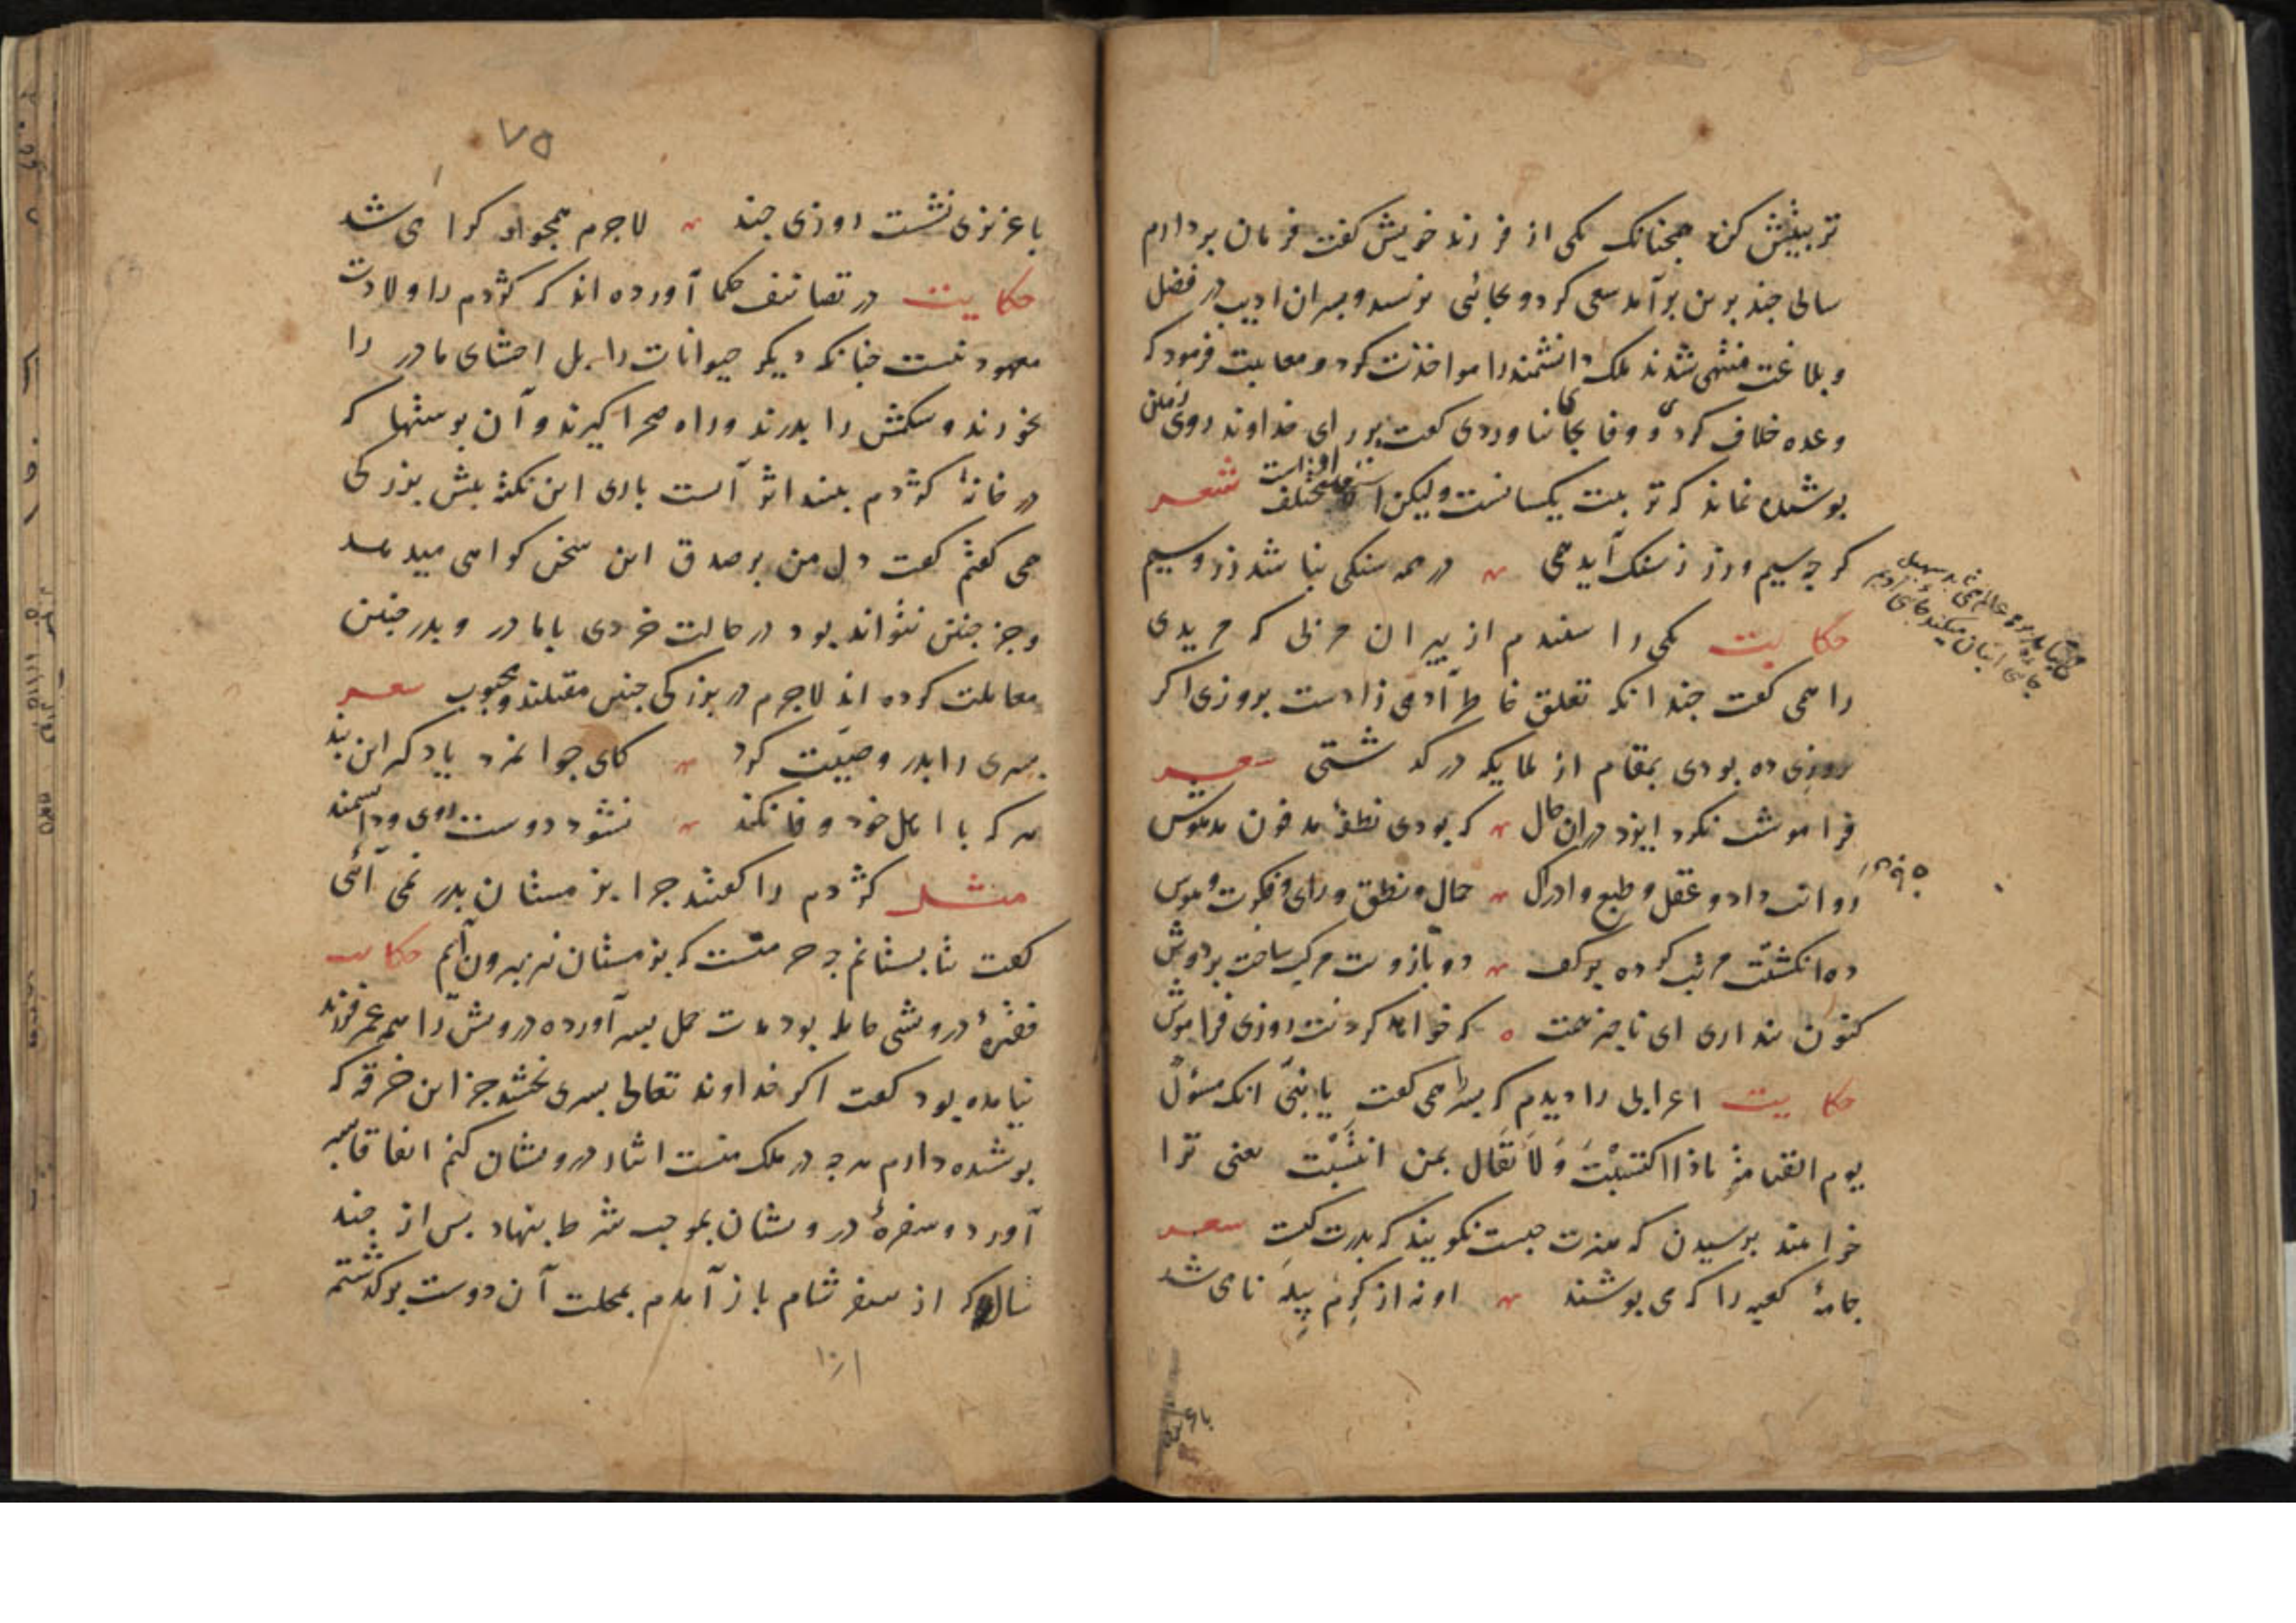 تربیتش کن همچنانک یکی از فرزند خویش کفت فرمان بردارم
سالی چند برین برآمد سعی کرد و بجائی نرسید و پسران ادیب در فضل
و بلاغت منتهی شدند ملک دانشمند را مواخذت کرد و معاتبت فرمود که
وعده خلاف کردی و وفا بجا نیاوردی کفت بر رای خداوند روی زمین
پوشیده نماند که تربیت یکسانست ولیکن مختلف است شعر
کرچه سیم و زر ز سنک آید همی در همه سنکی نباشد زر و سیم
حکایت یکی را شنیدم از پیران مربی که مریدی
را همی کفت چندانکه تعلق خاطر آدمی زادست بروزی اکر
بروزی ده بودی بمقام از ملایکه درکذشتی شعر
فراموشت نکرد ایزد دران حال که بودی نطفهٔ مدفون مدهوش
روانت داد و عقل و طبع و ادراک جمال و نطق و رای و فکرت و هوش
ده انکشتت مرتب کرده برکف دو بازوت مرکب ساخت بر دوش
کنون پنداری ای ناچیز همت که خواهد کردنت روزی فراموش
حکایت اعرابی را دیدم که پسر را همی کفت یا بنی انک مسؤل
یوم القیامة ماذا اکتسبت و لا تقال بمن انتسبت یعنی ترا
خواهند پرسیدن که هنرت چیست نکویند که پدرت کیست شعر
جامهٔ کعبه را که می بوشند او نه از کرم پیله نامی شد
باعز
۷۵
با عزیزی نشست روزی چند لاجرم همچو او کرامی شد
حکایت در تصانیف حکما آورده اند که کژدم را ولادت
معهود نیست چنانکه دیکر حیوانات را بل احشای مادر را
بخورند و شکمش را بدرند و راه صحرا کیرند و آن پوستها که
در خانهٔ کژدم بینند اثر آنست باری این نکته پیش بزرکی
همی کفتم کفت دل من بر صدق این سخن کواهی میدهد
و جز چنین نتواند بود در حالت خردی با مادر و پدر چنین
معاملت کرده اند لاجرم در بزرکی چنین مقبلند و محبوب شعر
پسری را پدر وصیت کرد کای جوانمرد یاد کیر این پند
هر که با اهل خود وفا نکند نشود دوست روی و دانشمند
مثل کژدم را کفتند چرا بزمستان بدر نمی آئی
کفت بتابستانم چه حرمتست که بزمستان نیز بیرون آیم حکایت
فقیرهٔ درویشی حامله بود مدت حمل بسر آورده درویش را همه عمر فرزند
نیامده بود کفت اکر خداوند تعالی پسری بخشد جز این خرقه که
پوشیده دارم هرچه در ملک منست ایثار درویشان کنم اتفاقا پسر
آورد و سفرهٔ درویشان بموجب شرط بنهاد پس از چند
سال که از سفر شام باز آمدم بمحلت آن دوست برکذشتم